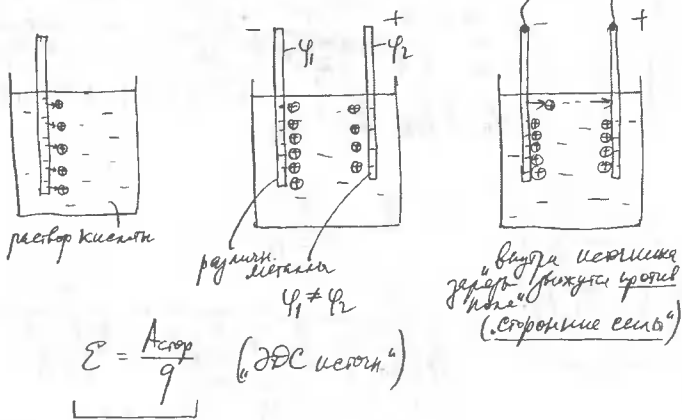 - φ₁ + φ₂
- +
раствор кислоты
различн.
металлы
φ₁ ≠ φ₂
"внутри источника
заряды движутся против
поля"
("сторонние силы")
ℰ = Aстор / q ("ЭДС источн.")